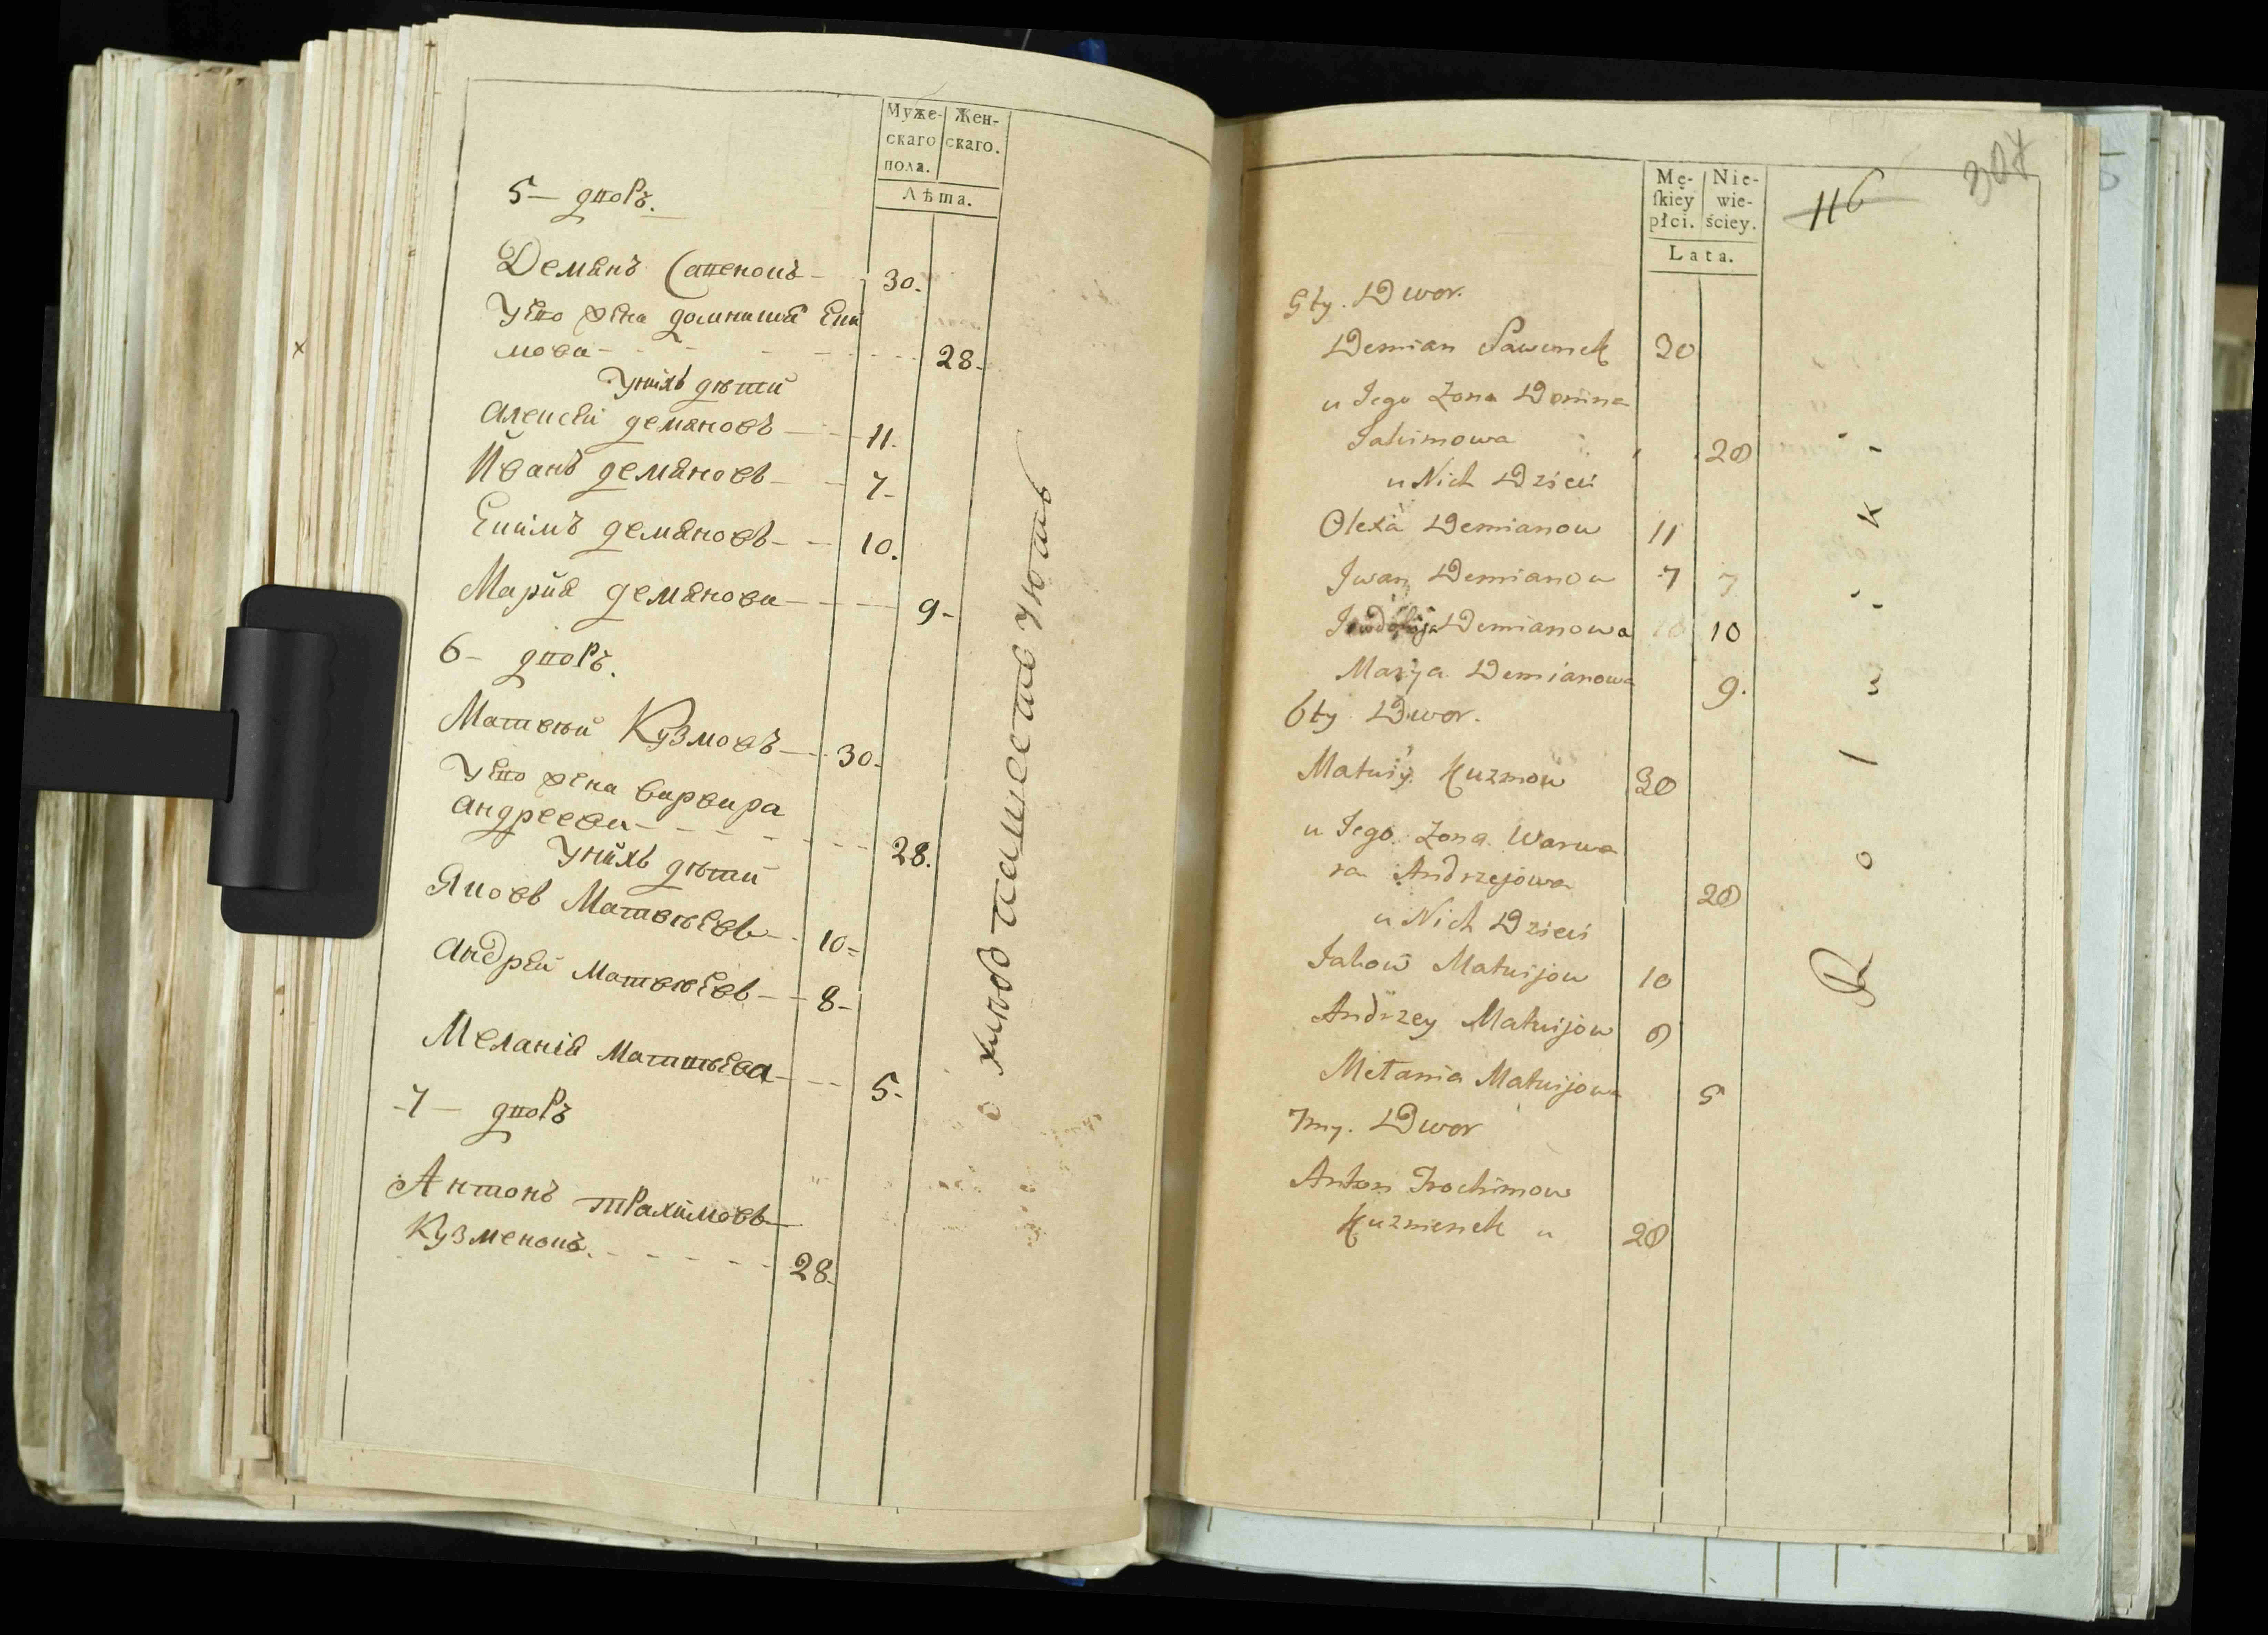 Муже-
скаго
пола.
Жен-
скаго.
Лѣта.
5 – дворъ.
Демянъ Савенокъ 30.
Уего жена домникия Еки
мова 28.
Унихъ дѣти
Алексѣй демяновъ 11.
Иванъ демяновъ 7
Екимъ демяновъ 10.
Мария демянова 9
6 – дворъ.
Матвѣй Кузмовъ 30.
Уего жена варвара
андреева 28.
Унихъ дѣти
Яковъ Матвѣевъ 10
Андрей Матвѣевъ 8
Меланія Матвѣева 5
7 – дворъ
Антонъ трахимовъ
Кузменокъ. 28.
хлѣбопашествуютъ
307
116
Mę-
skiey
płci.
Nie-
wie-
ściey.
Lata.
5ty. Dwor.
Demian Sawenek 30
u Jego Zona Domna
Jakimowa 28
u Nich Dzieci
Olexa Demianow 11
Jwan Demianow 7
Demianowa 10
Marya Demianowa 9.
6ty Dwor.
Matwiy Kuzmow 30
u Jego Zona Warwa
ra Andrzejowa 28
u Nich Dzieci
Jakow Matwijow 10
Andrzey Matwijow 8
Mełania Matwijowa 5
7my. Dwor
Anton Trochimow
Kuzmienek 28
R o l